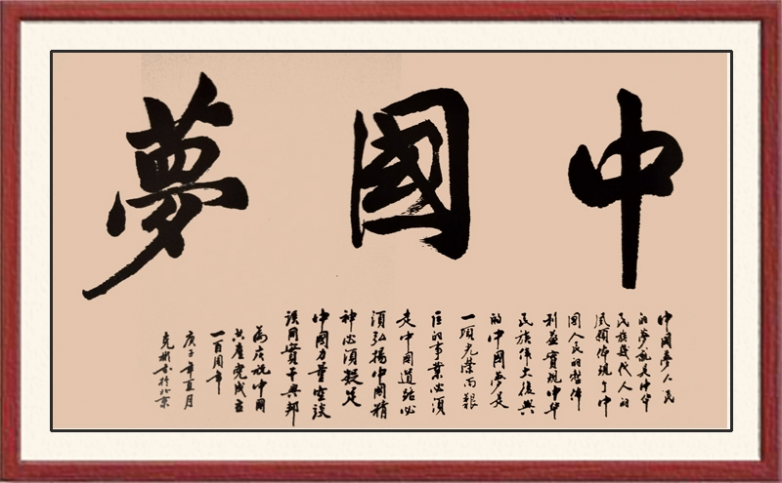 中國夢
中國夢人民
的夢就是中华
民族幾代人的
夙願体現了中
國人民的整体
利益實現中华
民族偉大復興
的中國夢是
一項光荣而艱
巨的事業必須
走中國道路必
須弘揚中國精
神必須凝
中國力量空談
誤國實干興邦
為庆祝中國
共產党成立
一百周年
庚子年五月
北京